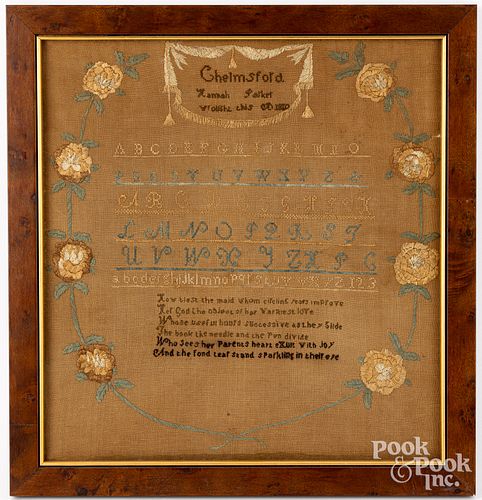 Chelmsford.
Hannah Parker
Wrought this AD 1810
A B C D E F G H I J K L M N O
P Q R S T U V W X Y Z &
A B C
L M N O P Q R S T
U V W X Y Z
a b c d e f g h i j k l m n o p q r s t u v w x y z 1 2 3
How blest the maid whom circling years improve
Her God the object of her warmest love
Whose useful hours successive as they Glide
The book the needle and the Pen divide
Who Sees her Parents heart eXult with Joy
And the fond tear stand sparkling in their eye
POOK
& POOK
INC.